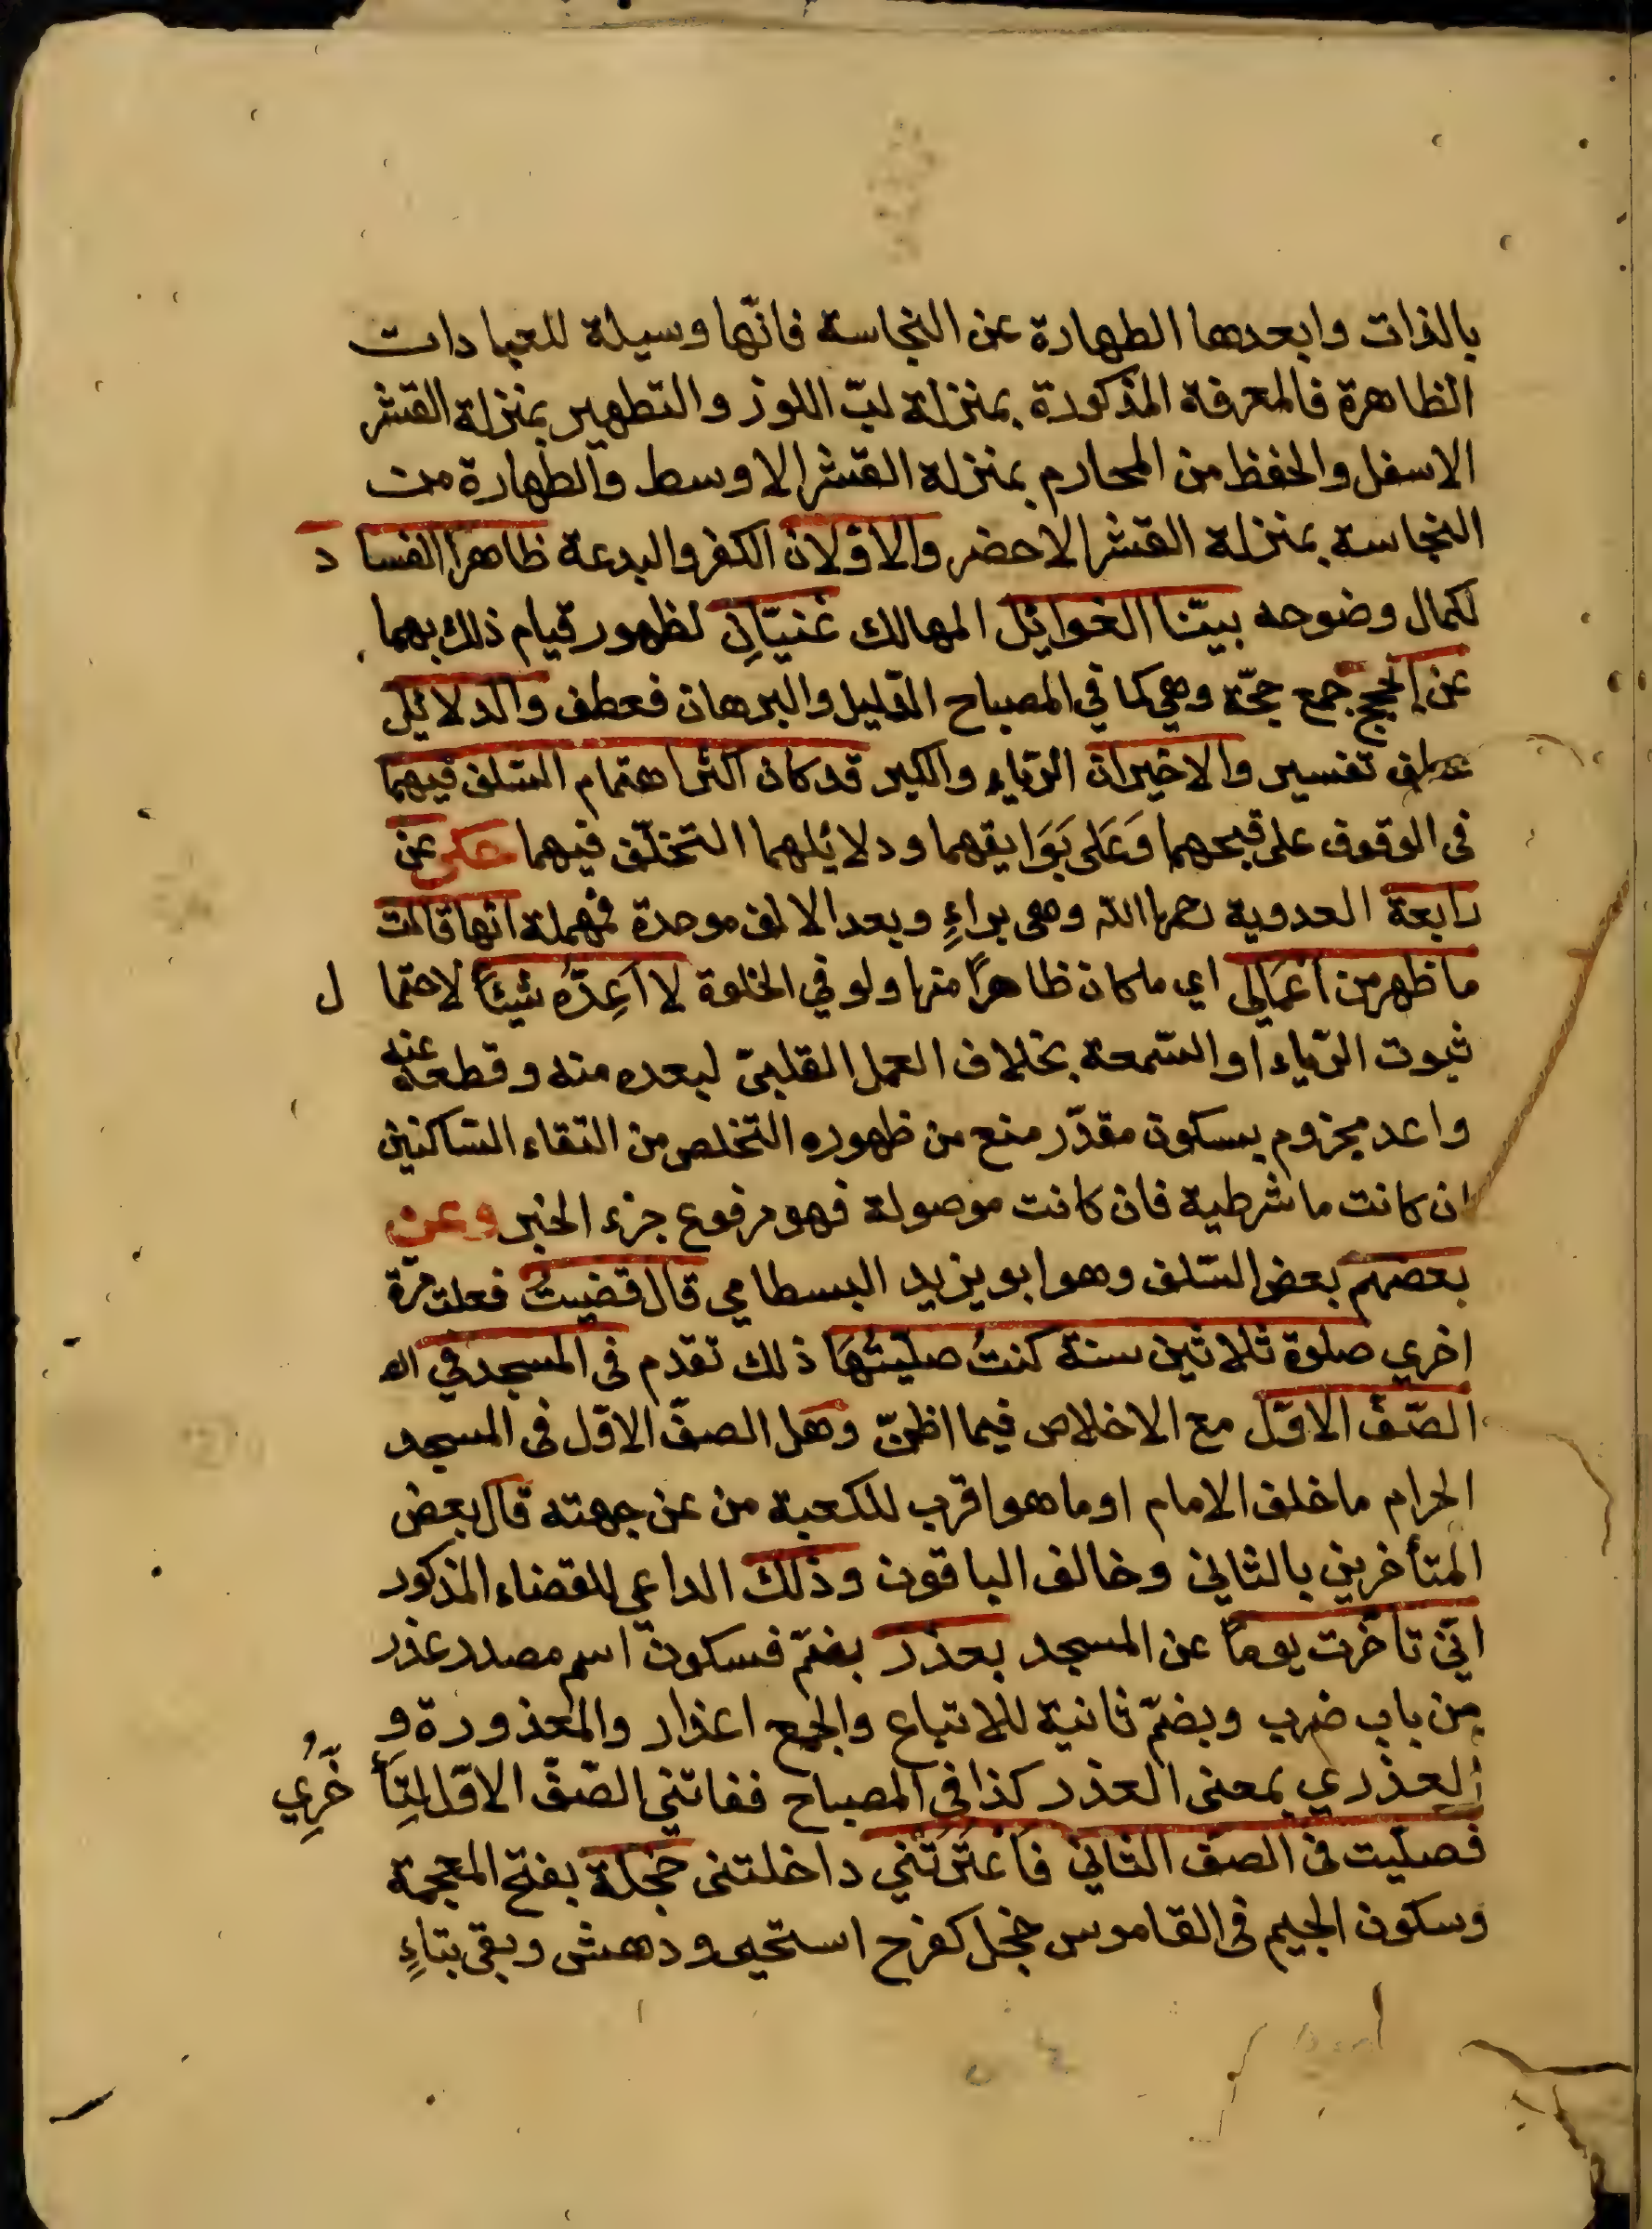 بالذات وابعدها الطهارة عن النجاسة فانّها وسيلة للعبادات
الظاهرة فالمعرفة المذكورة بمنزلة لبّ اللوز والتطهير بمنزلة القشر
الاسفل والحفظ من المحارم بمنزلة القشر الاوسط والطهارة من
النجاسة بمنزلة القشر الاخضر والاوّلان الكفر والبدعة ظاهرا الفساد
لكمال وضوحه بيّنا الغوائل المهالك غنيّانِ لظهور قيام ذلك بهما
عن الحجج جمع حجّة وهي كما في المصباح الدليل والبرهان فعطف والدلائل
عطف تفسير والاخيران الرّياء والكبر قد كان اكثر اهتمام السّلف فيهما
فى الوقوف على قبحهما وَعَلى بَوَايقهما ودلائلهما التخلّف فيهما حكى عن
رابعة العدوية رحمها الله وهى براءٍ وبعد الالف موحدة فمهملة انّها قالت
ما ظهر من اَعْمَالى اي ما كان ظاهرًا منها ولو في الخلوة لا اَعِدّهُ شيئًا لاحتمال
ثبوت الرّياء او السّمعة بخلاف العمل القلبىّ لبعده منه وقطعه عنه
واعد مجزوم بسكون مقدّر منع من ظهوره التخلص من التقاء السّاكنين
ان كانت ما شرطية فان كانت موصولة فهو مرفوع جزء الخبر وعن
بعضهم بعض السّلف وهو ابو يزيد البسطامي قال قضيتُ فعلت مرّة
اخري صلوة ثلاثين سنة كنتُ صليتُهَا ذلك تقدم فى المسجد في
الصّفّ الاوّل مع الاخلاص فيما اظنّ وهل الصفّ الاوّل فى المسجد
الحرام ما خلف الامام او ما هو اقرب للكعبة من عن جهته قال بعض
المتأخرين بالثاني وخالف الباقون وذلك الداعي للقضاء المذكور
انّي تاخّرت يوماً عن المسجد بعذر بضمّ فسكون اسم مصدر عذر
من باب ضرب وبضمّ ثانية للاتباع والجمع اعذار والمعذورة و
العذري بمعنى العذر كذا فى المصباح ففاتني الصّفّ الاوّل لتِأَخُّرِي
فصلّيت فى الصفّ الثاني فَاعْتَرَتْنِي داخلتنى خجلة بفتح المعجمة
وسكون الجيم فى القاموس خجل كفرح استحيى ودهش وبقى بتاءٍ